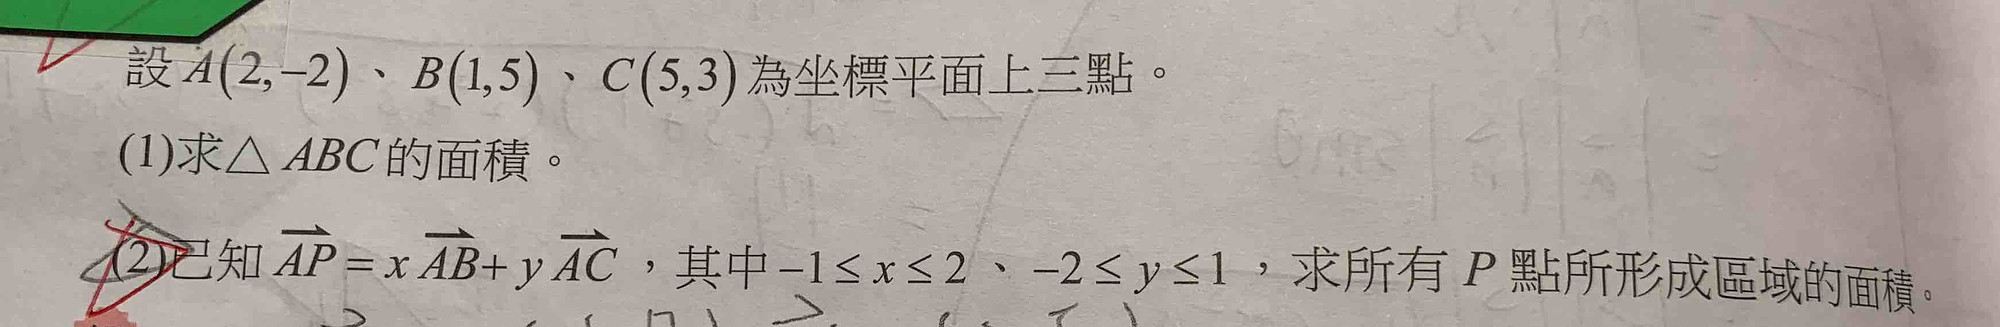 設 A(2,−2)、B(1,5)、C(5,3)為坐標平面上三點。
(1)求△ABC的面積。
(2)已知 $\overrightarrow{AP}$ = x $\overrightarrow{AB}$ + y $\overrightarrow{AC}$，其中 −1 ≤ x ≤ 2、−2 ≤ y ≤ 1，求所有 P 點所形成區域的面積。